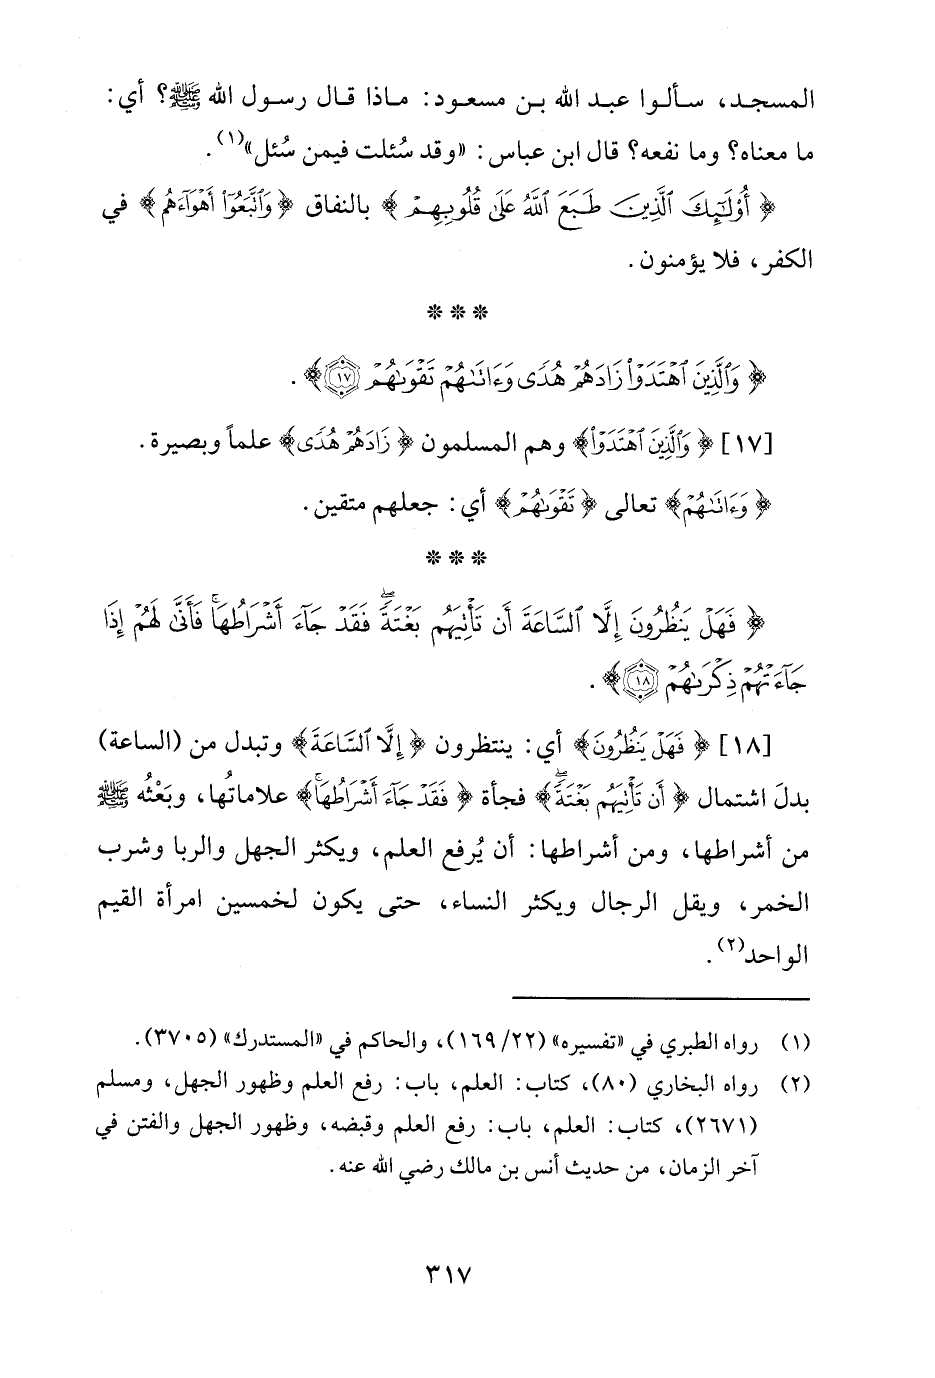 المسجد، سألوا عبد الله بن مسعود: ماذا قال رسول الله ﷺ؟ أي:
ما معناه؟ وما نفعه؟ قال ابن عباس: «وقد سُئلت فيمن سُئل»(١).
﴿ أُوْلَٰٓئِكَ ٱلَّذِينَ طَبَعَ ٱللَّهُ عَلَىٰ قُلُوبِهِمْ ﴾ بالنفاق ﴿ وَٱتَّبَعُوٓا۟ أَهْوَآءَهُمْ ﴾ في
الكفر، فلا يؤمنون.
* * *
﴿ وَٱلَّذِينَ ٱهْتَدَوْا۟ زَادَهُمْ هُدًى وَءَاتَىٰهُمْ تَقْوَىٰهُمْ ١٧ ﴾.
[١٧] ﴿ وَٱلَّذِينَ ٱهْتَدَوْا۟ ﴾ وهم المسلمون ﴿ زَادَهُمْ هُدًى ﴾ علماً وبصيرة.
﴿ وَءَاتَىٰهُمْ ﴾ تعالى ﴿ تَقْوَىٰهُمْ ﴾ أي: جعلهم متقين.
* * *
﴿ فَهَلْ يَنظُرُونَ إِلَّا ٱلسَّاعَةَ أَن تَأْتِيَهُم بَغْتَةً ۖ فَقَدْ جَآءَ أَشْرَاطُهَا ۚ فَأَنَّىٰ لَهُمْ إِذَا
جَآءَتْهُمْ ذِكْرَىٰهُمْ ١٨ ﴾.
[١٨] ﴿ فَهَلْ يَنظُرُونَ ﴾ أي: ينتظرون ﴿ إِلَّا ٱلسَّاعَةَ ﴾ وتبدل من (الساعة)
بدلَ اشتمال ﴿ أَن تَأْتِيَهُم بَغْتَةً ۖ ﴾ فجأة ﴿ فَقَدْ جَآءَ أَشْرَاطُهَا ۚ ﴾ علاماتُها، وبَعْثُه ﷺ
من أشراطها، ومن أشراطها: أن يُرفع العلم، ويكثر الجهل والربا وشرب
الخمر، ويقل الرجال ويكثر النساء، حتى يكون لخمسين امرأة القيم
الواحد(٢).
(١) رواه الطبري في «تفسيره» (٢٢/ ١٦٩)، والحاكم في «المستدرك» (٣٧٠٥).
(٢) رواه البخاري (٨٠)، كتاب: العلم، باب: رفع العلم وظهور الجهل، ومسلم
(٢٦٧١)، كتاب: العلم، باب: رفع العلم وقبضه، وظهور الجهل والفتن في
آخر الزمان، من حديث أنس بن مالك رضي الله عنه.
٣١٧